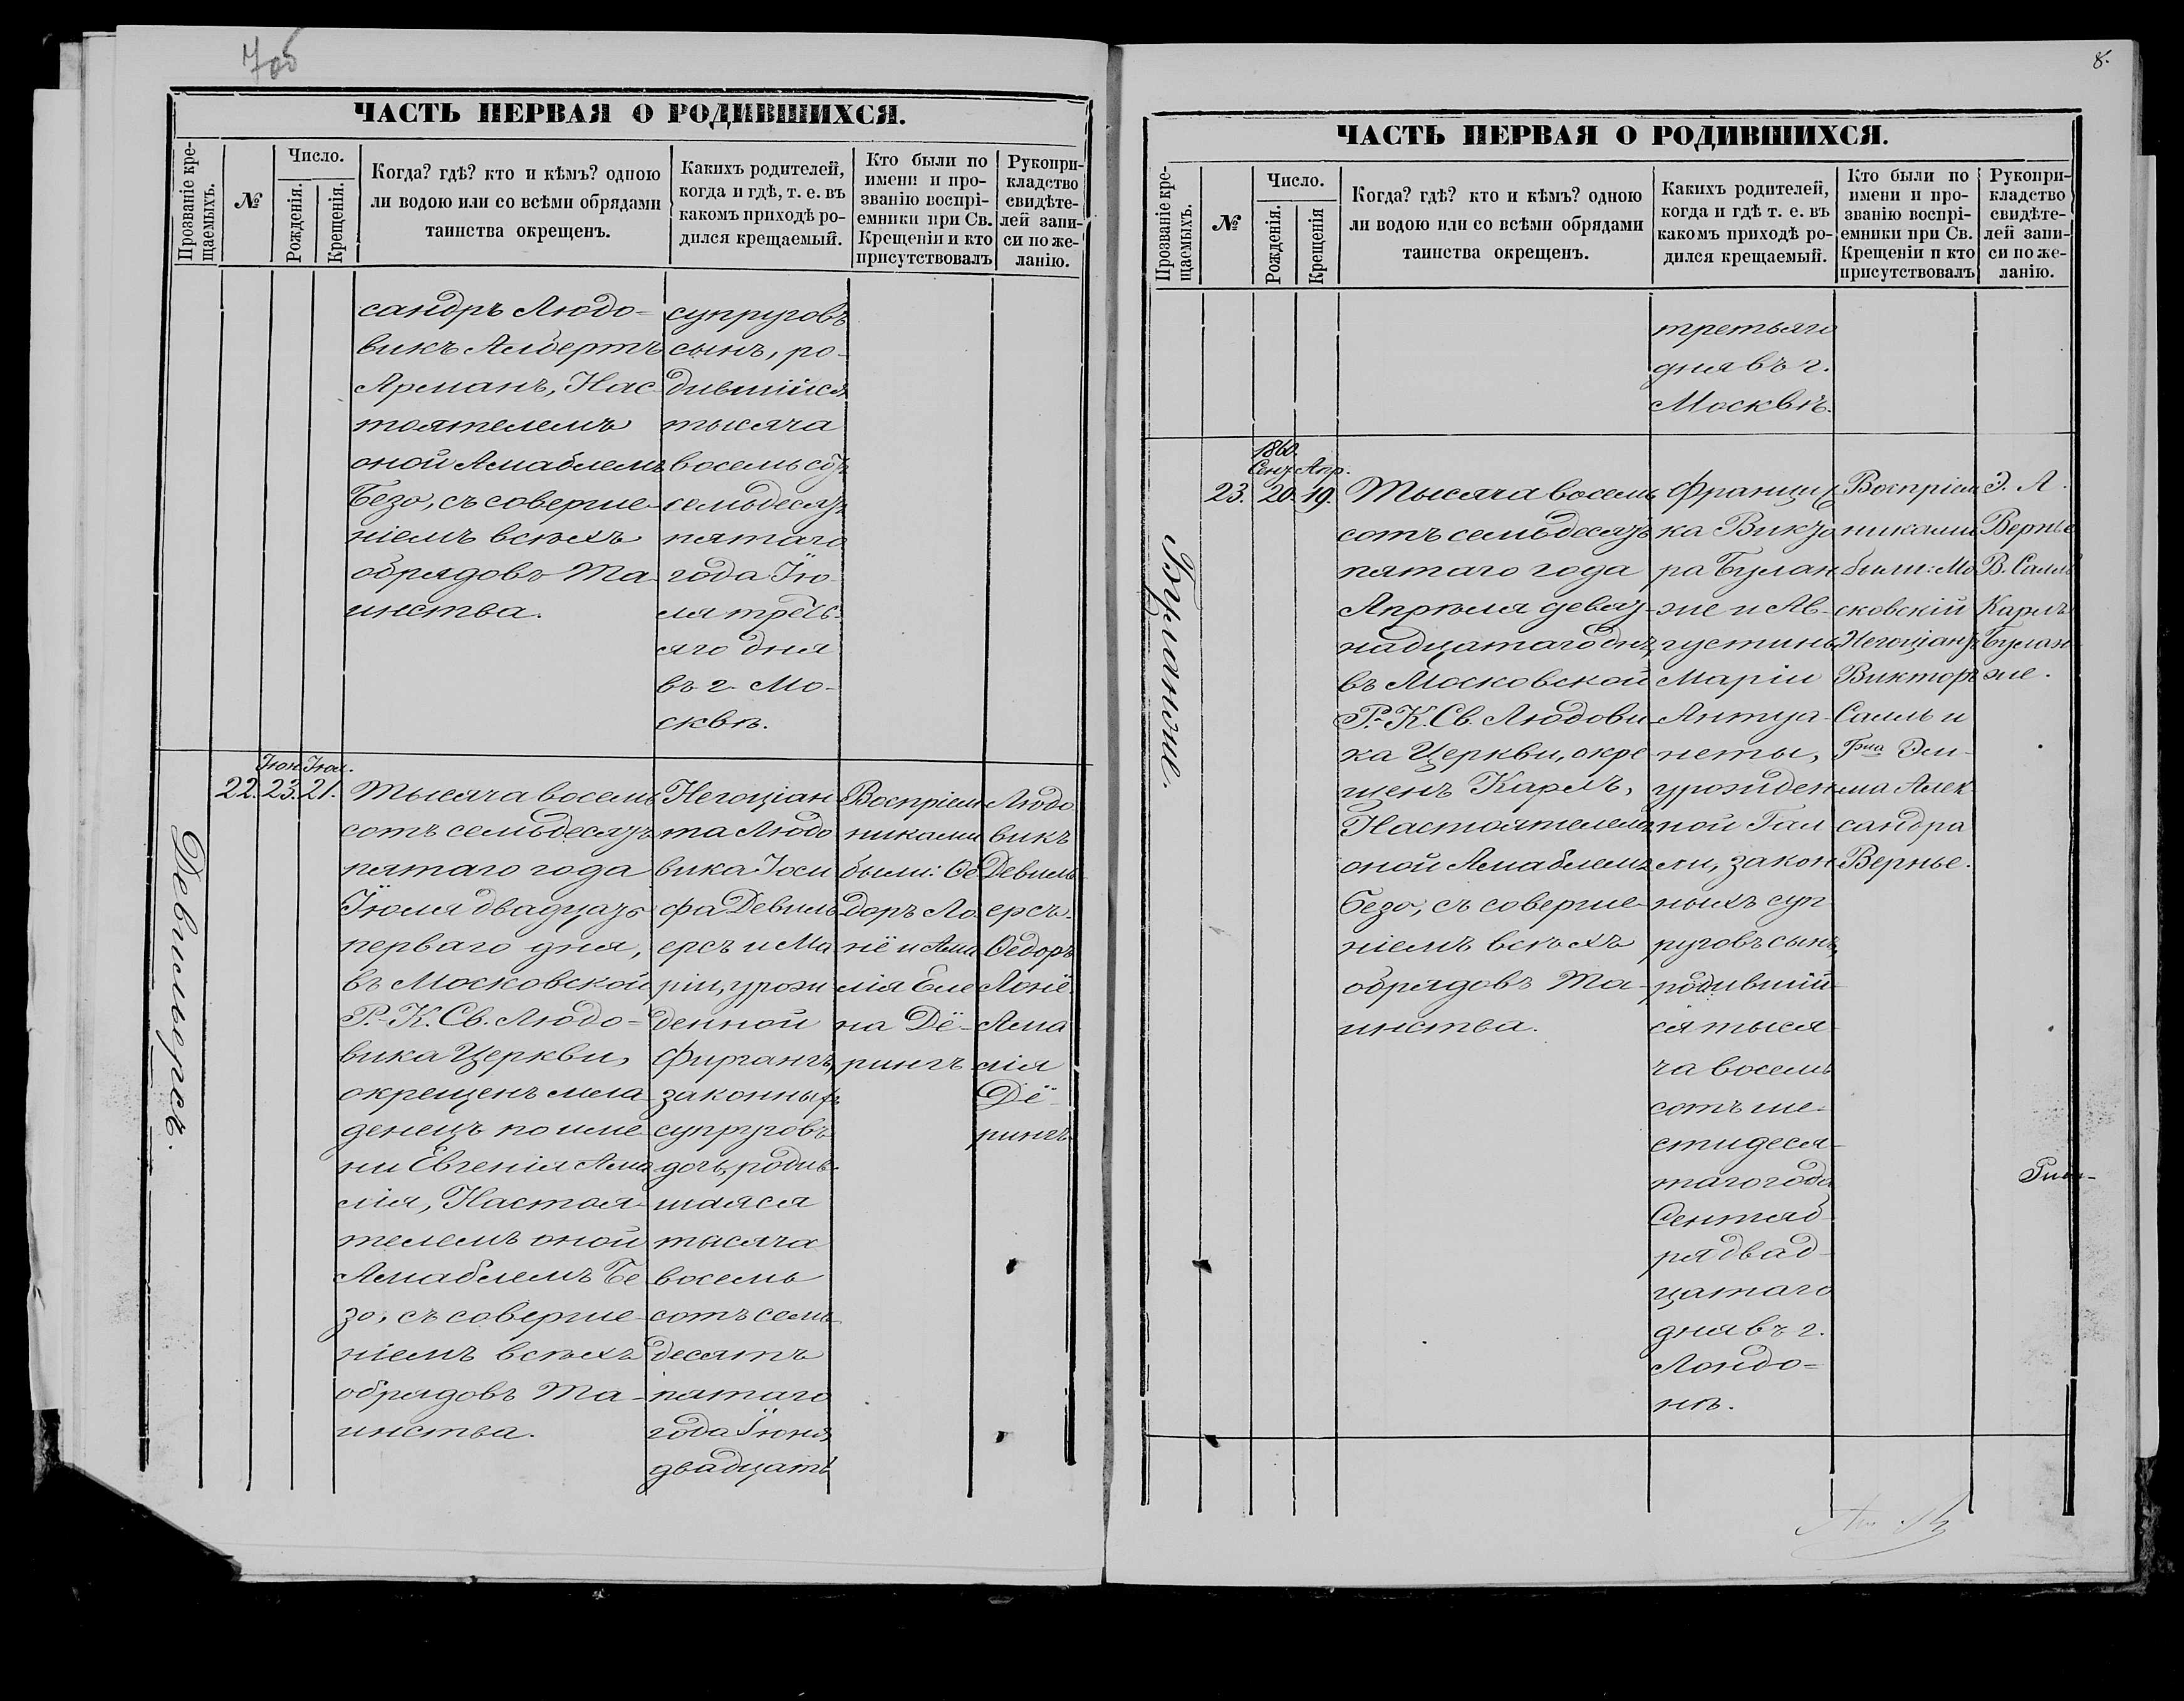 7об
ЧАСТЬ ПЕРВАЯ О РОДИВШИХСЯ.
Прозваніе кре-
щаемыхъ.
№
Число.
Рожденія.
Крещенія.
Когда? гдѣ? кто и кѣмъ? одною
ли водою или со всѣми обрядами
таинства окрещенъ.
Какихъ родителей,
когда и гдѣ, т. е. въ
какомъ приходѣ ро-
дился крещаемый.
Кто были по
имени и про-
званію воспрі-
емники при Св.
Крещеніи и кто
присутствовалъ
Рукопри-
кладство
свидѣте-
лей запи-
си по же-
ланію.
сандръ Людо=
викъ Албертъ
Арманъ, Нас-
тоятелемъ
оной Амаблемъ
Безо, съ соверше-
ніемъ всѣхъ
обрядовъ Та-
инства.
супруговъ
сынъ, ро-
дившійся
тысяча
восемьсотъ
семьдесятъ
пятаго
года Ію-
ля треть-
яго дня
въ г. Мо-
сквѣ.
Девильерсъ.
22.
Іюн.
23.
Іюл.
21.
Тысяча восемь
сотъ семьдесятъ
пятаго года
Іюля двадцать
перваго дня,
въ Московской
Р.-К. Св. Людо=
вика Церкви,
окрещенъ мла-
денецъ по име-
ни Евгенія Ама
лія, Настоя-
телемъ оной
Амаблемъ Бе
зо, съ соверше-
ніемъ всѣхъ
обрядовъ Та-
инства.
Негоціан
та Людо
вика Іоси
фа Девиль
ерсъ и Ма
ріи, урож
денной
Фиргангъ,
законныхъ
супруговъ
дочь, родив-
шаяся
тысяча
восемь
сотъ семь
десятъ
пятаго
года Іюня
двадцать
Воспріем
никами
были: Ѳе
доръ Ло
нё и Ама
лія Еле
на Дё-
рингъ
Людо
викъ
Девиль
ерсъ.
Ѳедоръ
Лонё.
Ама
лія
Дё-
рингъ
8.
ЧАСТЬ ПЕРВАЯ О РОДИВШИХСЯ.
Прозваніе кре-
щаемыхъ.
№
Число.
Рожденія.
Крещенія
Когда? гдѣ? кто и кѣмъ? одною
ли водою или со всѣми обрядами
таинства окрещенъ.
Какихъ родителей,
когда и гдѣ т. е. въ
какомъ приходѣ ро-
дился крещаемый.
Кто были по
имени и про-
званію воспрі-
емники при Св.
Крещеніи и кто
присутствовалъ
Рукопри-
кладство
свидѣте-
лей запи-
си по же-
ланію.
третьяго
дня въ г.
Москвѣ.
Буланже.
23.
1860.
Сент.
20.
Апр.
19.
Тысяча восемь
сотъ семьдесятъ
пятаго года
Апрѣля девят-
надцатаго дня,
въ Московской
Р.-К. Св. Людови-
ка Церкви, окре
щенъ Карлъ,
Настоятелемъ
оной Амаблемъ
Безо, съ соверше-
ніемъ всѣхъ
обрядовъ Та-
инства.
Францис
ка Викто
ра Булан
же и Ав-
густины
Маріи
Антуа-
неты,
урожден
ной Гал
ли, закон
ныхъ суп
руговъ сынъ,
родивший
ся тыся
ча восемь
сотъ ше-
стидеся-
таго года
Сентяб
ря двад
цатаго
дня въ г.
Лондо=
нѣ.
Воспріем
никами
были: Мо
сковскій
Негоціантъ
Викторъ
Саллъ и
Г-жа Эм-
ма Алек
сандра
Вернье.
Э. А.
Вернье
В. Саллъ
Карлъ
Булан
же.